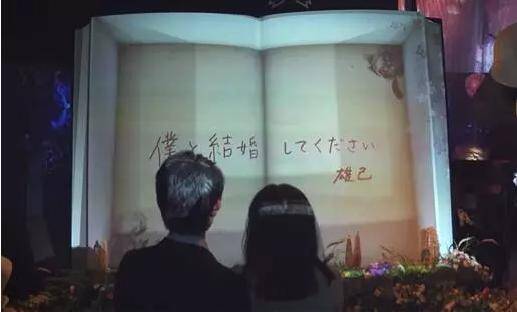 僕と結婚してください
雄己